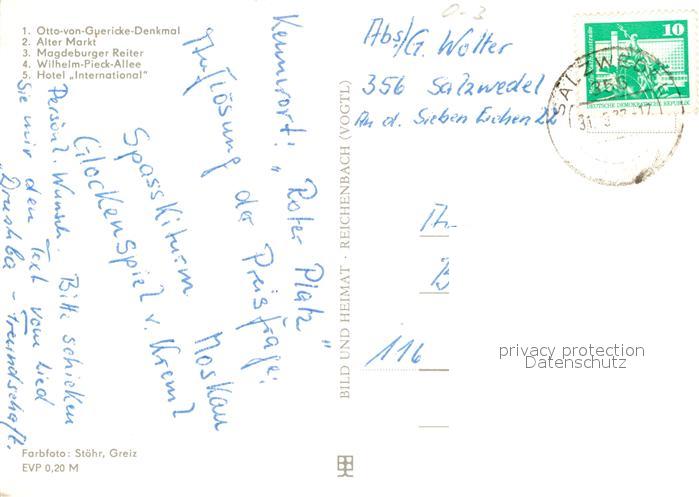 1. Otto-von-Guericke-Denkmal
2. Alter Markt
3. Magdeburger Reiter
4. Wilhelm-Pieck-Allee
5. Hotel „International"
Kennwort: „Roter Platz"
Auflösung der Preisfrage:
Spasskiturm Moskau
Glockenspiel v. Kreml
Persönl. Wunsch: Bitte schicken
Sie mir den Text vom Lied
„Drushba - Freundschaft.
Farbfoto: Stöhr, Greiz
EVP 0,20 M
BILD UND HEIMAT · REICHENBACH (VOGTL)
0-3
Abs/G. Wolter
356 Salzwedel
An d. Sieben Eichen 22
10
DEUTSCHE DEMOKRATISCHE REPUBLIK
SALZWEDEL
356
An
116
privacy protection
Datenschutz